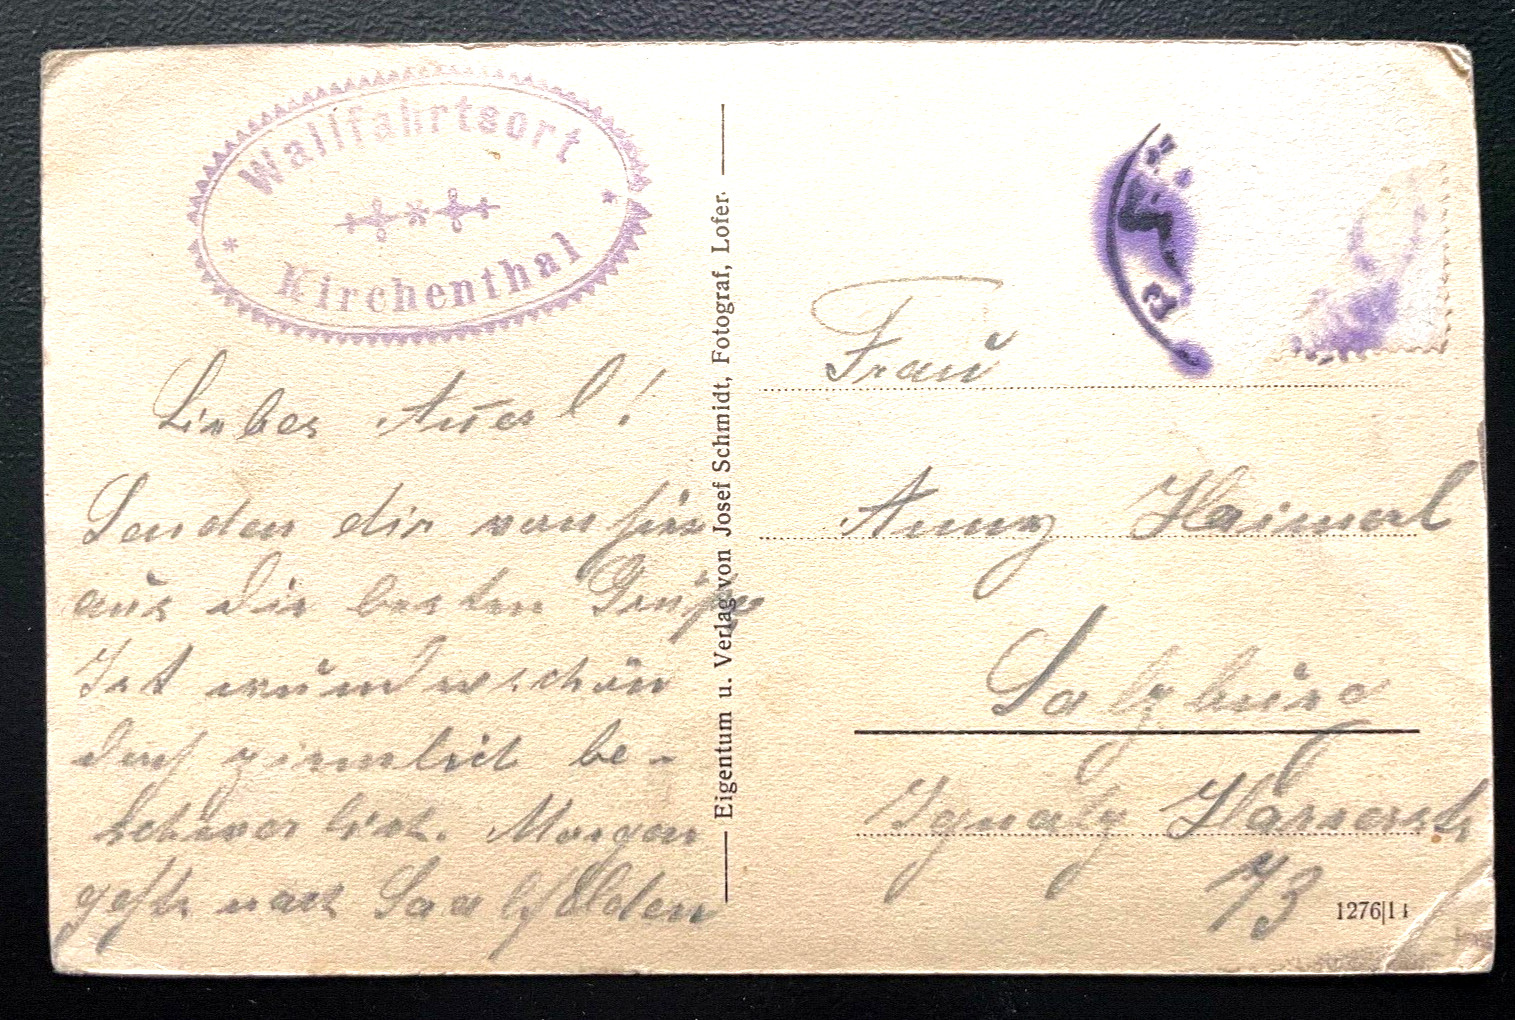 Wallfahrtsort
Kirchenthal
Liebes Annerl!
Senden dir von hier
aus die besten Grüße
Ist wunderschön
doch ziemlich be-
schwerlich. Morgen
gehts nach Saalfelden
Eigentum u. Verlag von Josef Schmidt, Fotograf, Lofer.
Frau
Anny Haimerl
Salzburg
Ignatz Harrerstr
73
1276|11